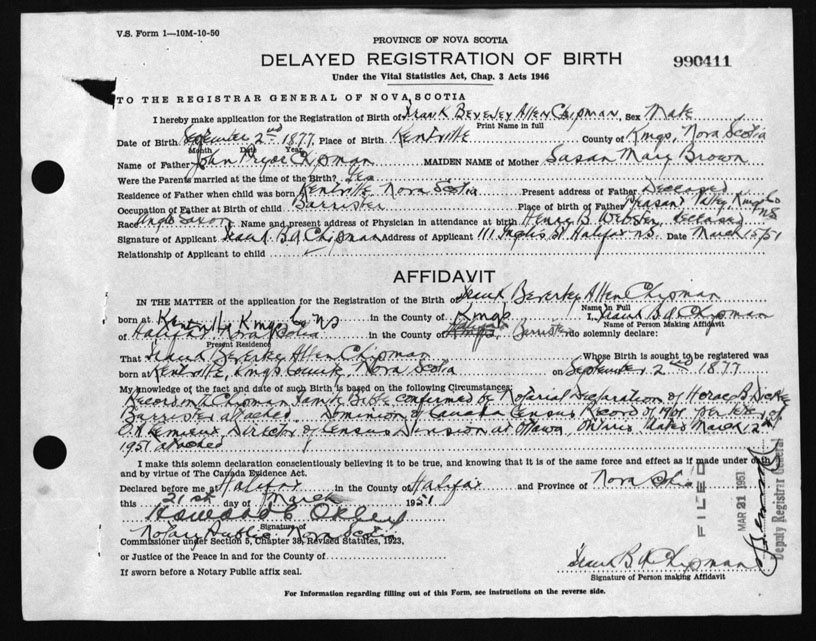 V.S. Form 1—10M-10-50
PROVINCE OF NOVA SCOTIA
DELAYED REGISTRATION OF BIRTH
990411
Under the Vital Statistics Act, Chap. 3 Acts 1946
TO THE REGISTRAR GENERAL OF NOVA SCOTIA
I hereby make application for the Registration of Birth of Frank Beverley Allen Chipman, Sex Male
Print Name in full
Date of Birth September 2nd 1877 Place of Birth Kentville County of Kings, Nova Scotia
Month Date Year
Name of Father John Pryor Chipman MAIDEN NAME of Mother Susan Mary Brown
Were the Parents married at the time of the Birth? Yes
Residence of Father when child was born Kentville Nova Scotia Present address of Father Deceased
Occupation of Father at Birth of child Barrister Place of birth of Father Pleasant Valley Kings Co NS
Race Anglo Saxon Name and present address of Physician in attendance at birth Henry B. Webster, deceased
Signature of Applicant Frank B. A. Chipman Address of Applicant 111 Inglis St Halifax N.S. Date March 15/51
Relationship of Applicant to child
AFFIDAVIT
IN THE MATTER of the application for the Registration of the Birth of Frank Beverley Allen Chipman
Name in Full
born at Kentville Kings Co NS in the County of Kings I, Frank B. A. Chipman
Name of Person Making Affidavit
of Halifax Nova Scotia in the County of Halifax Barrister do solemnly declare:
Present Residence
That Frank Beverley Allen Chipman Whose Birth is sought to be registered was
born at Kentville, Kings County, Nova Scotia on September 2nd 1877
My knowledge of the fact and date of such Birth is based on the following Circumstances:
Record in Chipman Family Bible confirmed by Notarial Declaration of Horace B. Dickey
Barrister attached. Dominion of Canada Census Record of 1901 per letter of
O. A. Lemieux Director of Census Division at Ottawa, Dated March 12th
1951 attached
I make this solemn declaration conscientiously believing it to be true, and knowing that it is of the same force and effect as if made under oath
and by virtue of The Canada Evidence Act.
Declared before me at Halifax in the County of Halifax and Province of Nova Scotia
this 21st day of March 1951
Signature of
Notary Public, Nova Scotia
Commissioner under Section 5, Chapter 38, Revised Statutes, 1923,
or Justice of the Peace in and for the County of
Frank B. A. Chipman
If sworn before a Notary Public affix seal.
Signature of Person making Affidavit
For Information regarding filling out of this Form, see instructions on the reverse side.
FILED
MAR 21 1951
Deputy Registrar General